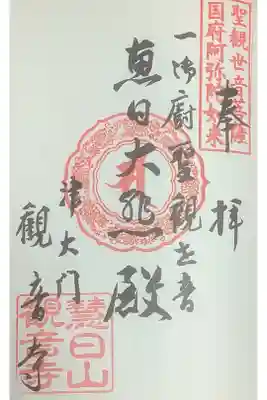 聖観世音菩薩
国府阿弥陀如来
奉拝
一御廚聖観世音
恵日大悲殿
津大門
観音寺
慧日山
観音寺